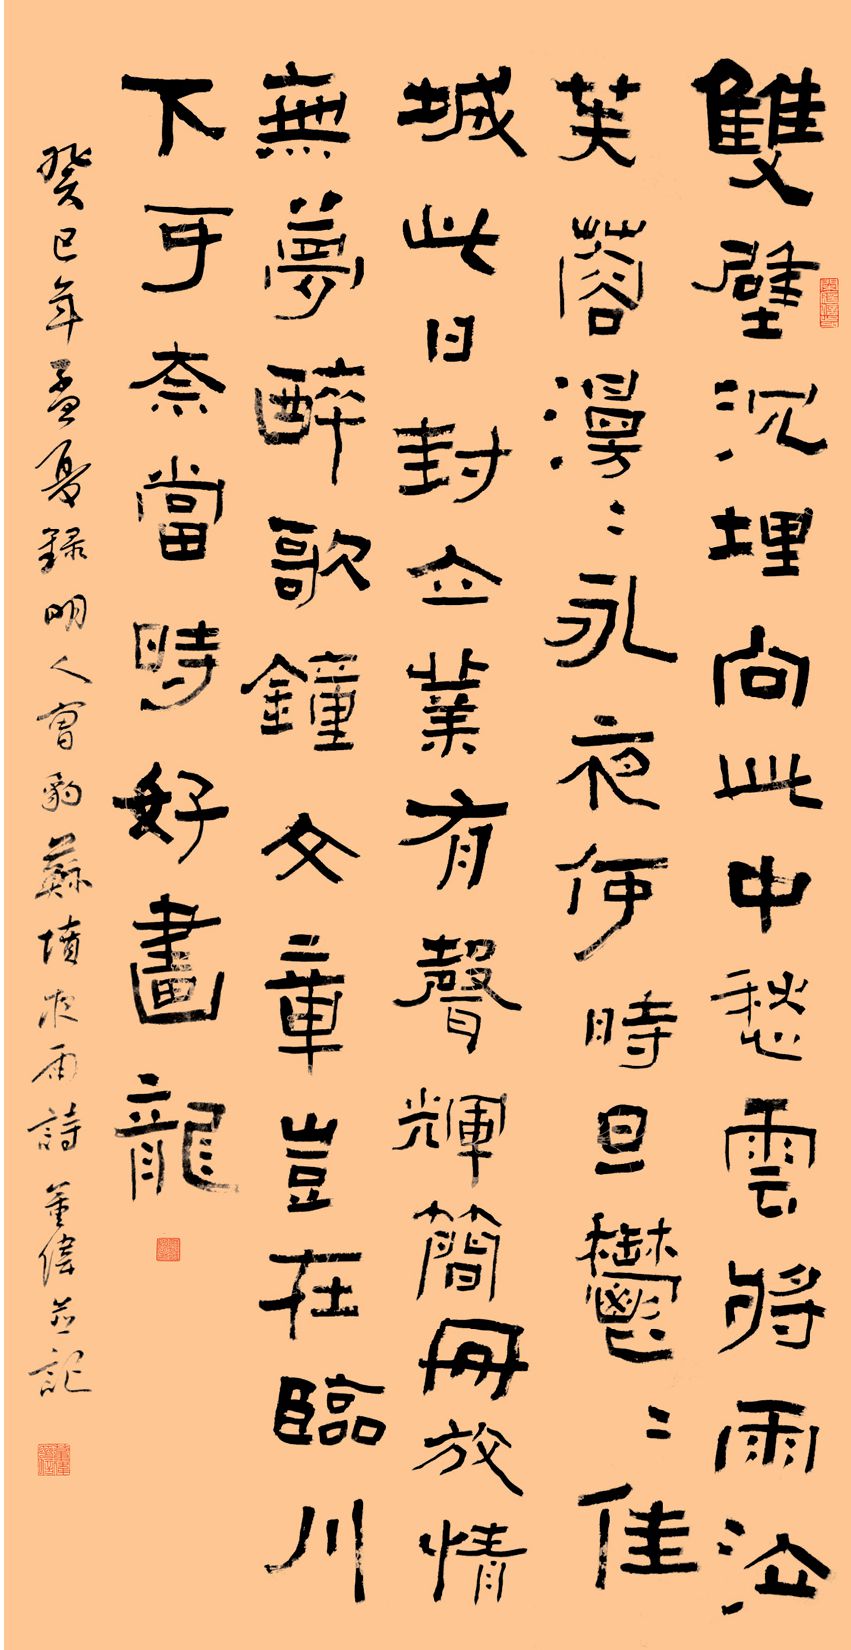 雙璧沉埋向此中愁雲將雨泣
芙蓉漫〻永夜何時旦鬱〻佳
城此日封立業有聲輝簡冊放情
無夢醉歌鐘文章豈在臨川
下可奈當時好畫龍
癸巳年孟夏錄明人曹豹蘇墳夜雨詩董偉並記